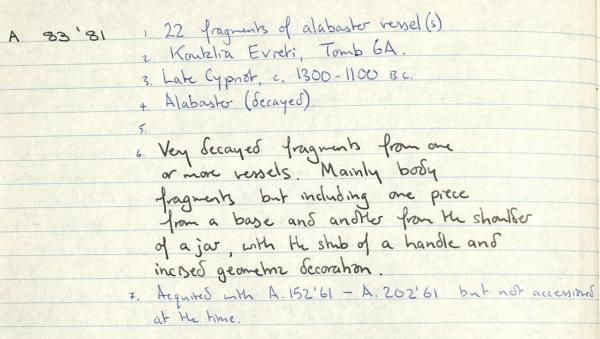 A 83'81 1. 22 fragments of alabaster vessel(s)
2. Kouklia Evreti, Tomb 6A.
3. Late Cypriot, c. 1300-1100 B.C.
4. Alabaster (decayed)
5.
6. Very decayed fragments from one
or more vessels. Mainly body
fragments but including one piece
from a base and another from the shoulder
of a jar, with the stub of a handle and
incised geometric decoration.
7. Acquired with A.152'61 – A.202'61 but not accessioned
at the time.